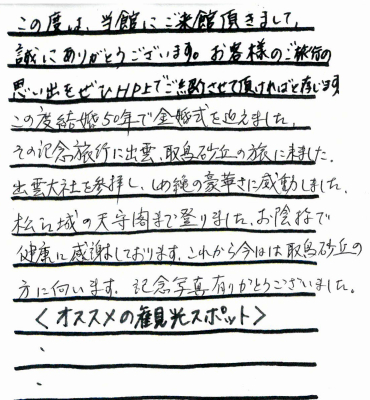 この度は、当館にご来館頂きまして、
誠にありがとうございます。お客様のご旅行の
思い出をぜひHP上でご紹介させて頂ければと存じます
この度結婚50年で金婚式を迎えました。
その記念旅行に出雲、取鳥砂丘の旅に来ました。
出雲大社を参拝し、しめ縄の豪華さに感動しました。
松江城の天守閣まで登りました。お陰様で
健康に感謝しております。これから今日は取鳥砂丘の
方に向います。記念写真有りがとうございました。
＜オススメの観光スポット＞
・
・